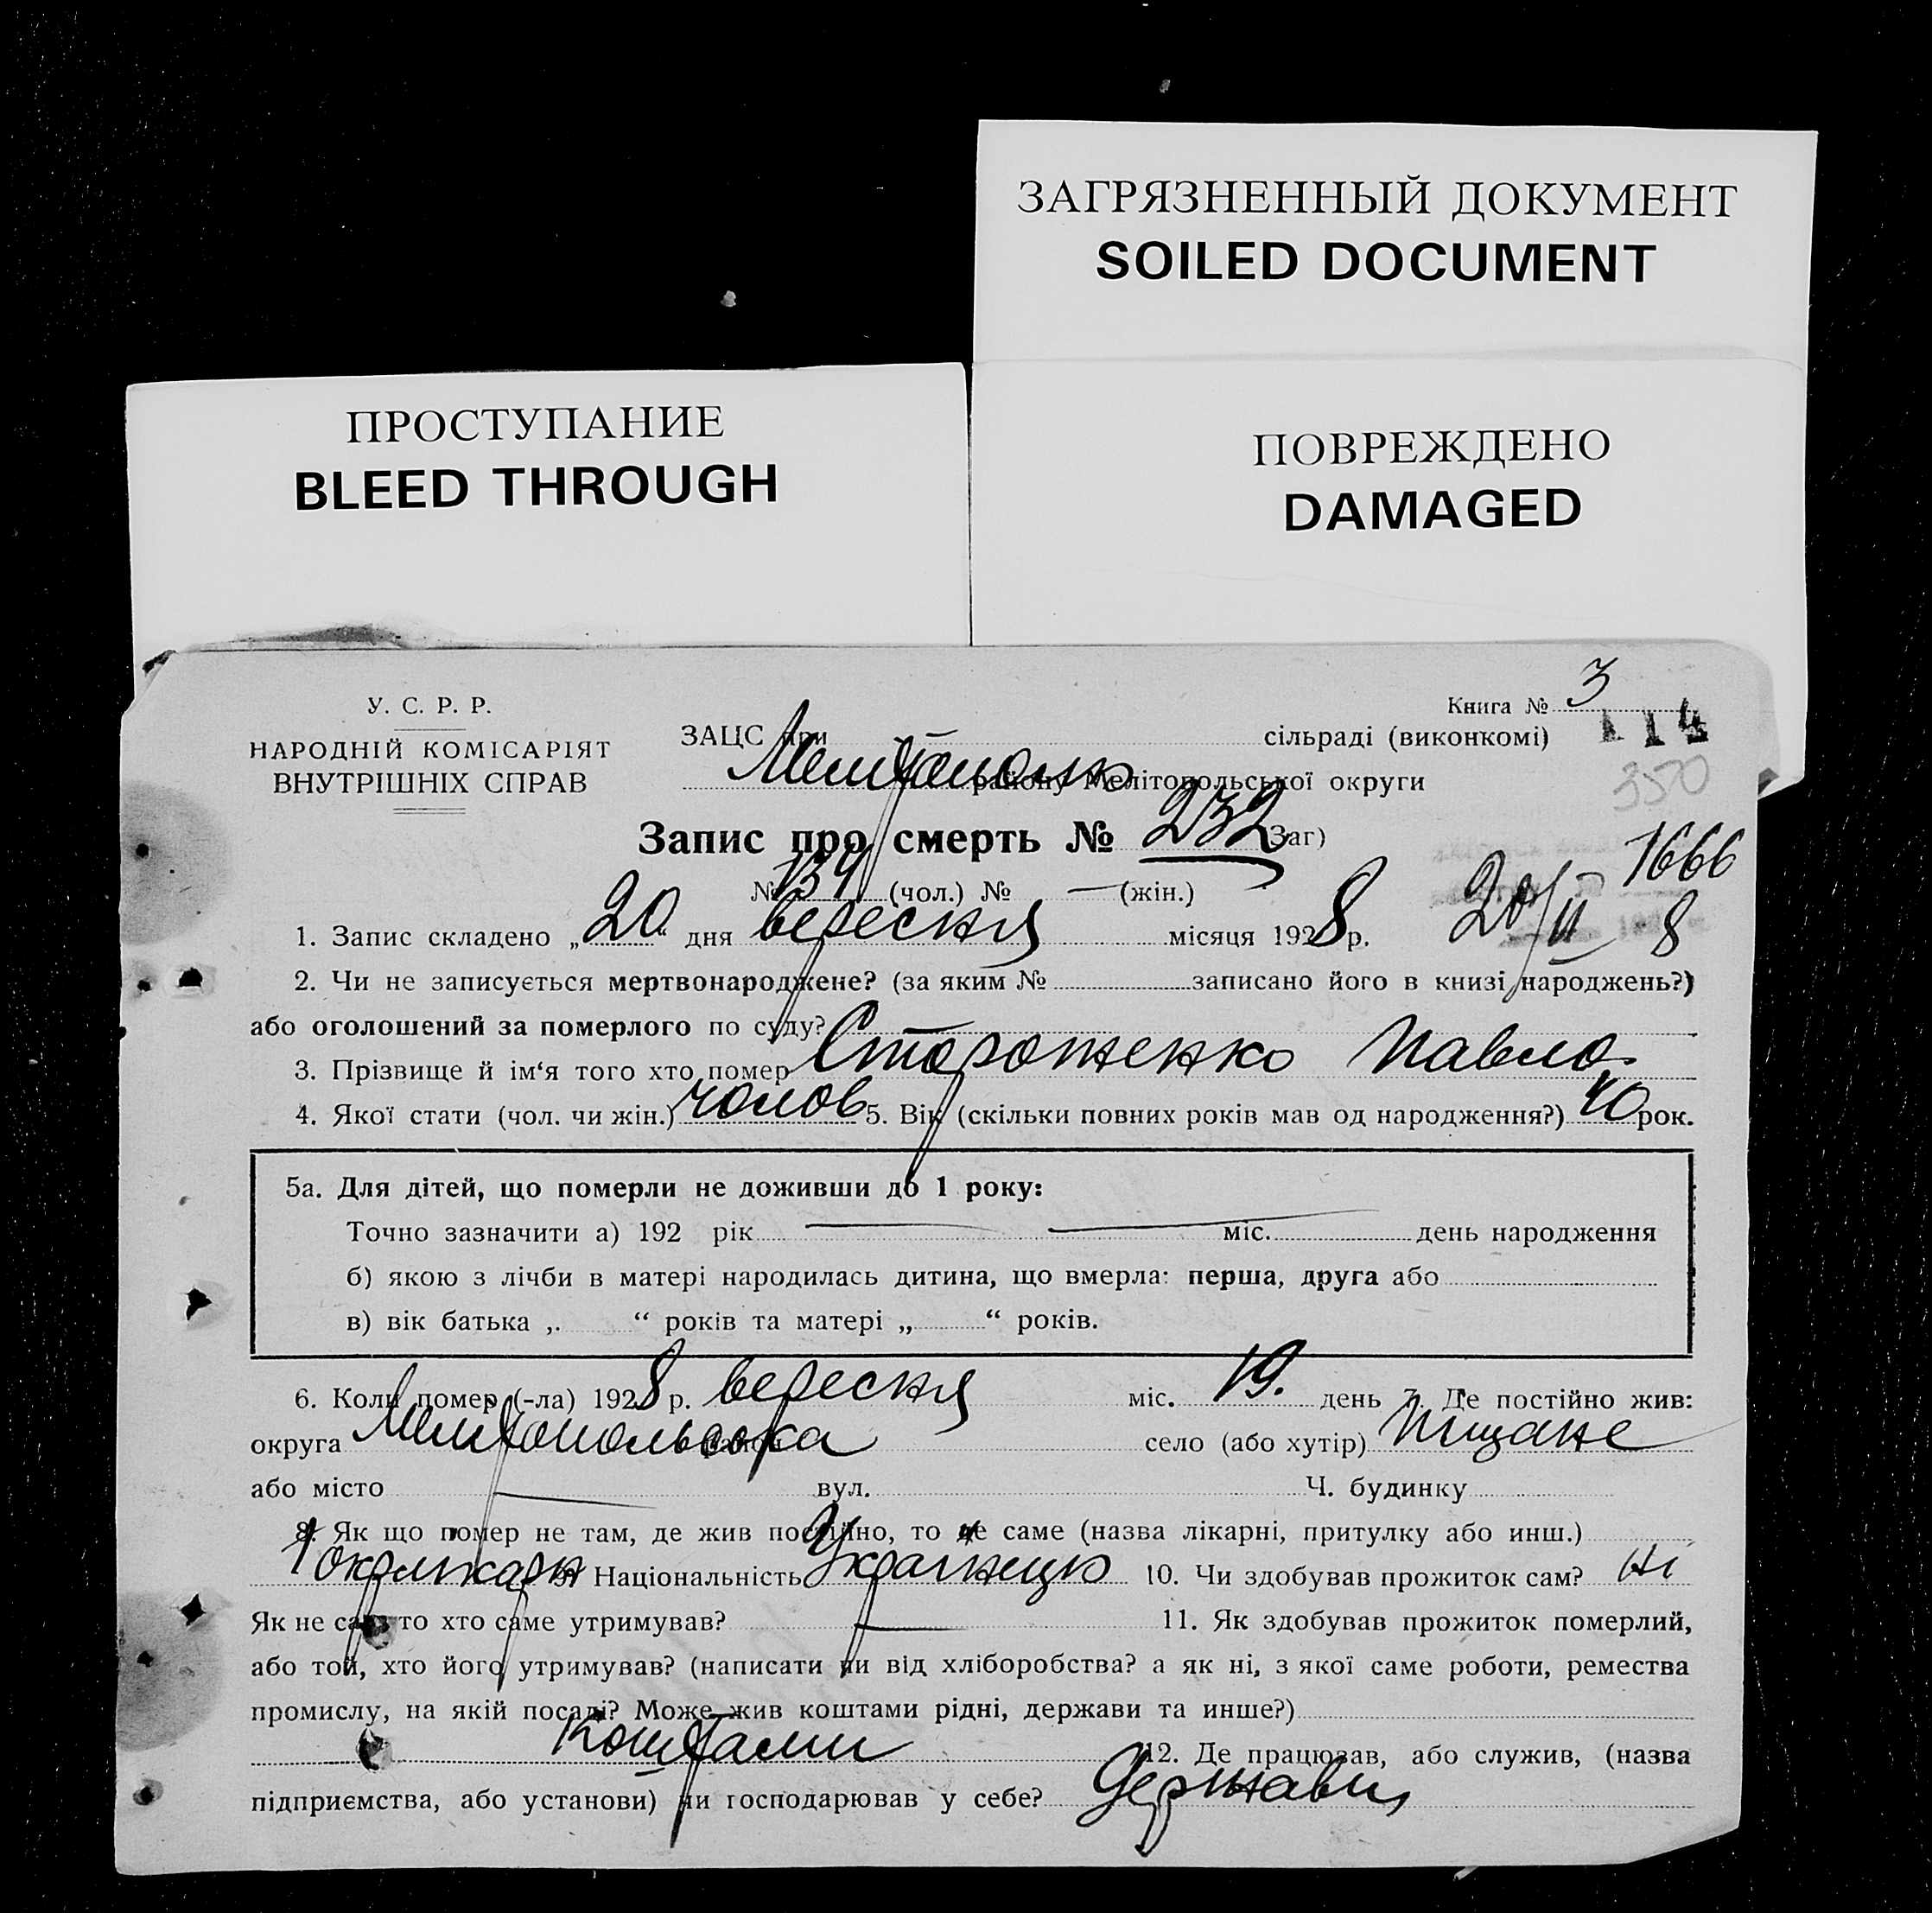 ЗАГРЯЗНЕННЫЙ ДОКУМЕНТ
SOILED DOCUMENT
ПРОСТУПАНИЕ
BLEED THROUGH
ПОВРЕЖДЕНО
DAMAGED
У. С. Р. Р.
НАРОДНІЙ КОМІСАРІЯТ
ВНУТРІШНІХ СПРАВ
Книга № 3
114
ЗАЦС при сільраді (виконкомі)
Мелітополь району Мелітопольської округи
350
Запис про смерть № 232 Заг)
1666
№ 134 (чол.) № — (жін.)
20/II 8
1. Запис складено „20“ дня вересня місяця 1928 р.
2. Чи не записується мертвонароджене? (за яким № записано його в книзі народжень?)
або оголошений за померлого по суду?
3. Прізвище й ім‘я того хто помер Стороженко Павло
4. Якої стати (чол. чи жін.) чолов 5. Вік (скільки повних років мав од народження?) 40 рок.
5а. Для дітей, що померли не доживши до 1 року:
Точно зазначити а) 192 рік міс. день народження
б) якою з лічби в матері народилась дитина, що вмерла: перша, друга або
в) вік батька „ “ років та матері „ “ років.
6. Коли помер (-ла) 1928 р. вересня міс. 19. день 7. Де постійно жив:
округа Мелітопольська район село (або хутір) Піщане
або місто — вул. Ч. будинку
8. Як що помер не там, де жив постійно, то де саме (назва лікарні, притулку або инш.)
1 окрлікарн 9. Національність Українець 10. Чи здобував прожиток сам? ні
Як не сам то хто саме утримував? — 11. Як здобував прожиток померлий,
або той, хто його утримував? (написати чи від хліборобства? а як ні, з якої саме роботи, ремества
промислу, на якій посаді? Може жив коштами рідні, держави та инше?)
Коштами 12. Де працював, або служив, (назва
підприємства, або установи) чи господарював у себе? Держави